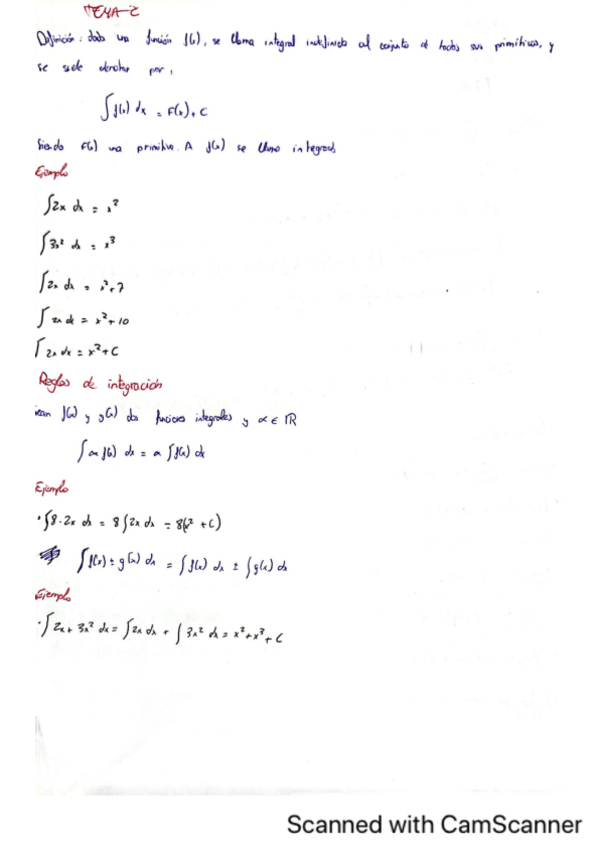 TEMA-2
Definición: dada una función f(x), se llama integral indefinida al conjunto de todas sus primitivas, y
se suele denotar por:
∫f(x) dx = F(x) + C
Siendo F(x) una primitiva. A f(x) se llama integrando
Ejemplo
∫2x dx = x²
∫3x² dx = x³
∫2x dx = x²+7
∫2x dx = x²+10
∫2x dx = x²+C
Reglas de integración
sean f(x) y g(x) dos funciones integrables y α ∈ IR
∫α f(x) dx = α ∫f(x) dx
Ejemplo
·∫8·2x dx = 8∫2x dx = 8(x² + C)
∫f(x) ± g(x) dx = ∫f(x) dx ± ∫g(x) dx
Ejemplo
·∫2x + 3x² dx = ∫2x dx + ∫3x² dx = x² + x³ + C
Scanned with CamScanner